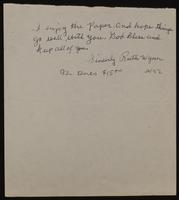 I enjoy the Paper and hope things
go well with you. God Bless and
keep all of you.
Sincerely Ruth Wynn
Dues $15.00